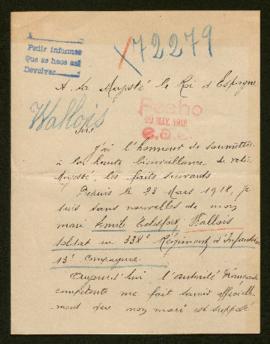 72279
Pedir informes
que se hace así
Devolver
A Sa Majesté le Roi d'Espagne
Fecho
29 MAY. 1918
e.a.e.
Wallois
Sire
J'ai l'honneur de soumettre
à la haute bienveillance de votre
Majesté, les faits suivants
Depuis le 28 Mars 1918, je
suis sans nouvelles de mon
mari Emile Wallois
soldat au 338e Régiment d'Infanterie
13e Compagnie
Aujourd'hui l'autorité Française
compétente me fait savoir officielle
ment que mon mari est supposé